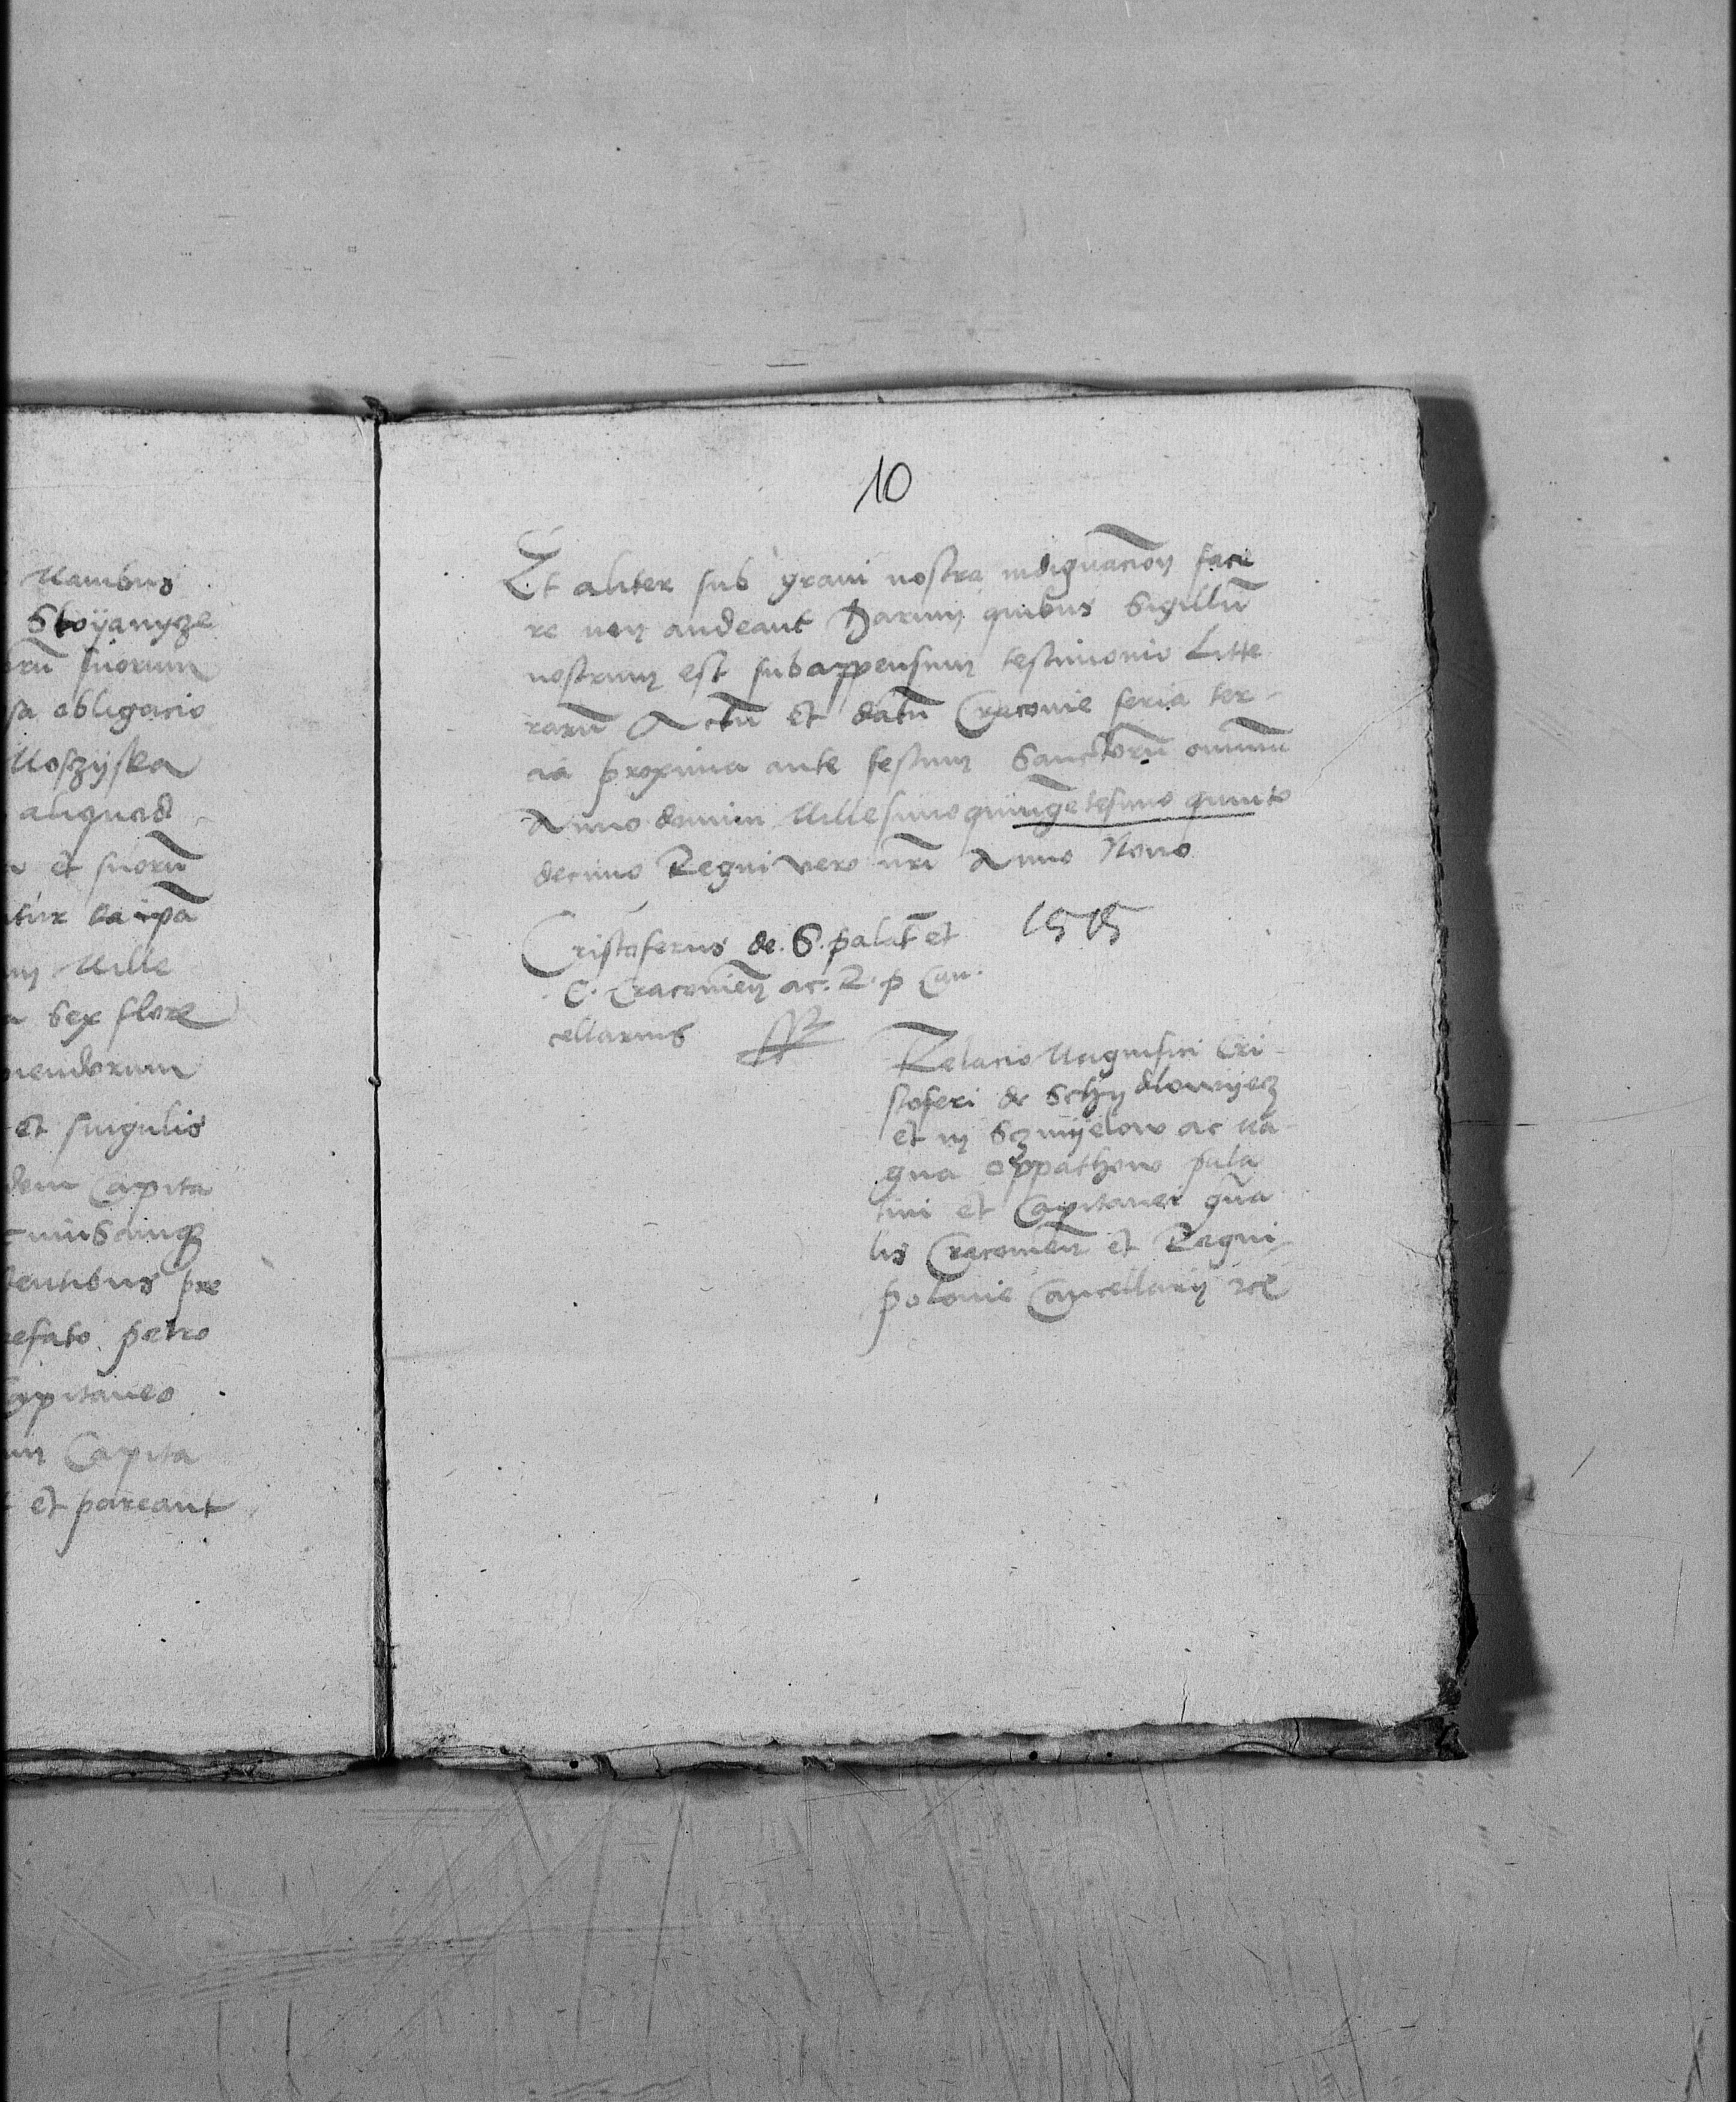 Manibus
Stoyanycze
orū suorum
sa obligacio
Moszyska
aliquod
et suorū
tur ca ipā
Mille
Sex flore
mendorum
et singulis
dem Capita
cuiuscumq
sentibus pre
refato petro
Capitaneo
um Capita
et pareant
10
Et aliter sub graui nostra indignacion̄ face
re non audeant Harum quibus Sigillū
nostrum est subappensum testimonio Litte
rarū Actū et datū Cracouie feria ter-
cia proxima ante festum Sanctorū omniū
Anno domini Millesimo quingētesimo quinto
decimo Regni vero nr̄i Anno Nono
1515
Cristoferus de. S. palat̄ et
C. Cracouien̄ ac. R. p Can-
cellarius
Relacio Magnifici Cri-
stoferi de Schydlowyecz
et in Czmyelow ac ma-
gna Oppathow pala
tini et Capitanei gn̄a
lis Cracouien̄ et Regni
polonie Cancellarij rcē